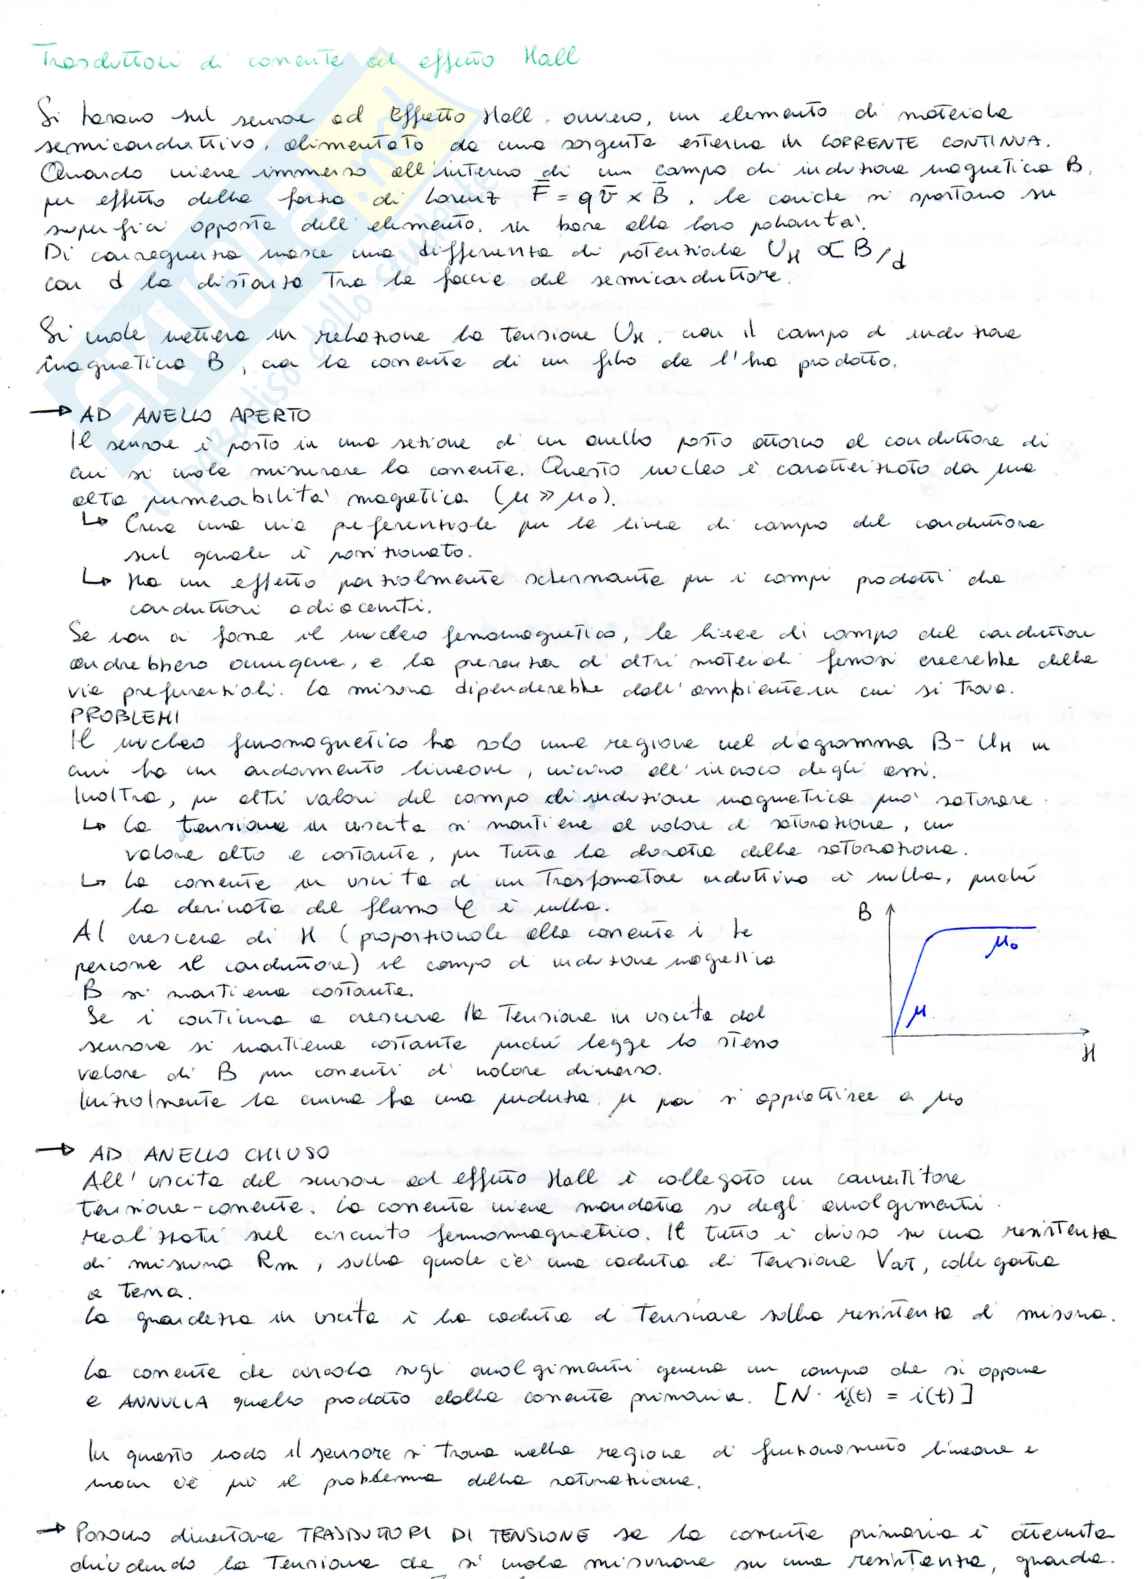 Trasduttori di corrente ad effetto Hall
Si basano sul sensore ad Effetto Hall, ovvero, un elemento di materiale
semiconduttivo, alimentato da una sorgente esterna in CORRENTE CONTINUA.
Quando viene immerso all'interno di un campo di induzione magnetica B,
per effetto della forza di Lorenz F̅ = q v̅ × B̅, le cariche si spostano su
superfici opposte dell'elemento, in base alla loro polarità.
Di conseguenza nasce una differenza di potenziale U_H ∝ B/d
con d la distanza tra le facce del semiconduttore.
Si vuole mettere in relazione la tensione U_H, con il campo d'induzione
magnetica B, con la corrente di un filo che l'ha prodotto.
→ AD ANELLO APERTO
Il sensore è posto in una sezione di un anello posto attorno al conduttore di
cui si vuole misurare la corrente. Questo nucleo è caratterizzato da una
alta permeabilità magnetica (μ ≫ μ₀).
↳ Crea una via preferenziale per le linee di campo del conduttore
sul quale è posizionato.
↳ Ha un effetto parzialmente schermante per i campi prodotti da
conduttori adiacenti.
Se non ci fosse il nucleo ferromagnetico, le linee di campo del conduttore
andrebbero ovunque, e la presenza di altri materiali ferrosi creerebbe delle
vie preferenziali. La misura dipenderebbe dall'ambiente in cui si trova.
PROBLEMI
Il nucleo ferromagnetico ha solo una regione nel diagramma B-U_H in
cui ha un andamento lineare, vicino all'incrocio degli assi.
Inoltre, per alti valori del campo di induzione magnetica può saturare.
↳ La tensione in uscita si mantiene al valore di saturazione, un
valore alto e costante, per tutta la durata della saturazione.
↳ La corrente in uscita di un trasformatore induttivo è nulla, perché
la derivata del flusso φ è nulla.
Al crescere di H (proporzionale alla corrente i che
percorre il conduttore) il campo di induzione magnetica
B si mantiene costante.
Se i continua a crescere la tensione in uscita dal
sensore si mantiene costante perché legge lo stesso
valore di B per correnti di valore diverso.
Inizialmente la curva ha una pendenza μ poi si appiattisce a μ₀
B
μ₀
μ
H
→ AD ANELLO CHIUSO
All'uscita del sensore ad effetto Hall è collegato un convertitore
tensione-corrente. La corrente viene mandata su degli avvolgimenti
realizzati sul circuito ferromagnetico. Il tutto è chiuso su una resistenza
di misura Rm, sulla quale c'è una caduta di tensione V_OUT, collegata
a terra.
La grandezza in uscita è la caduta di tensione sulla resistenza di misura.
La corrente che circola sugli avvolgimenti genera un campo che si oppone
e ANNULLA quello prodotto dalla corrente primaria. [N · i₂(t) = i(t)]
In questo modo il sensore si trova nella regione di funzionamento lineare e
non c'è più il problema della saturazione.
→ Possono diventare TRASDUTTORI DI TENSIONE se la corrente primaria è ottenuta
chiudendo la tensione che si vuole misurare su una resistenza, grande.